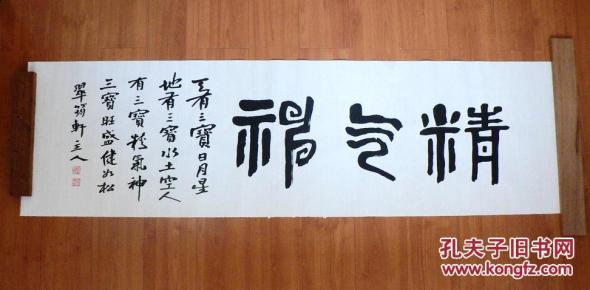 精气神
天有三寶日月星
地有三寶水土空人
有三寶精氣神
三寶旺盛健如松
翠筠軒主人
孔夫子旧书网
www.kongfz.com